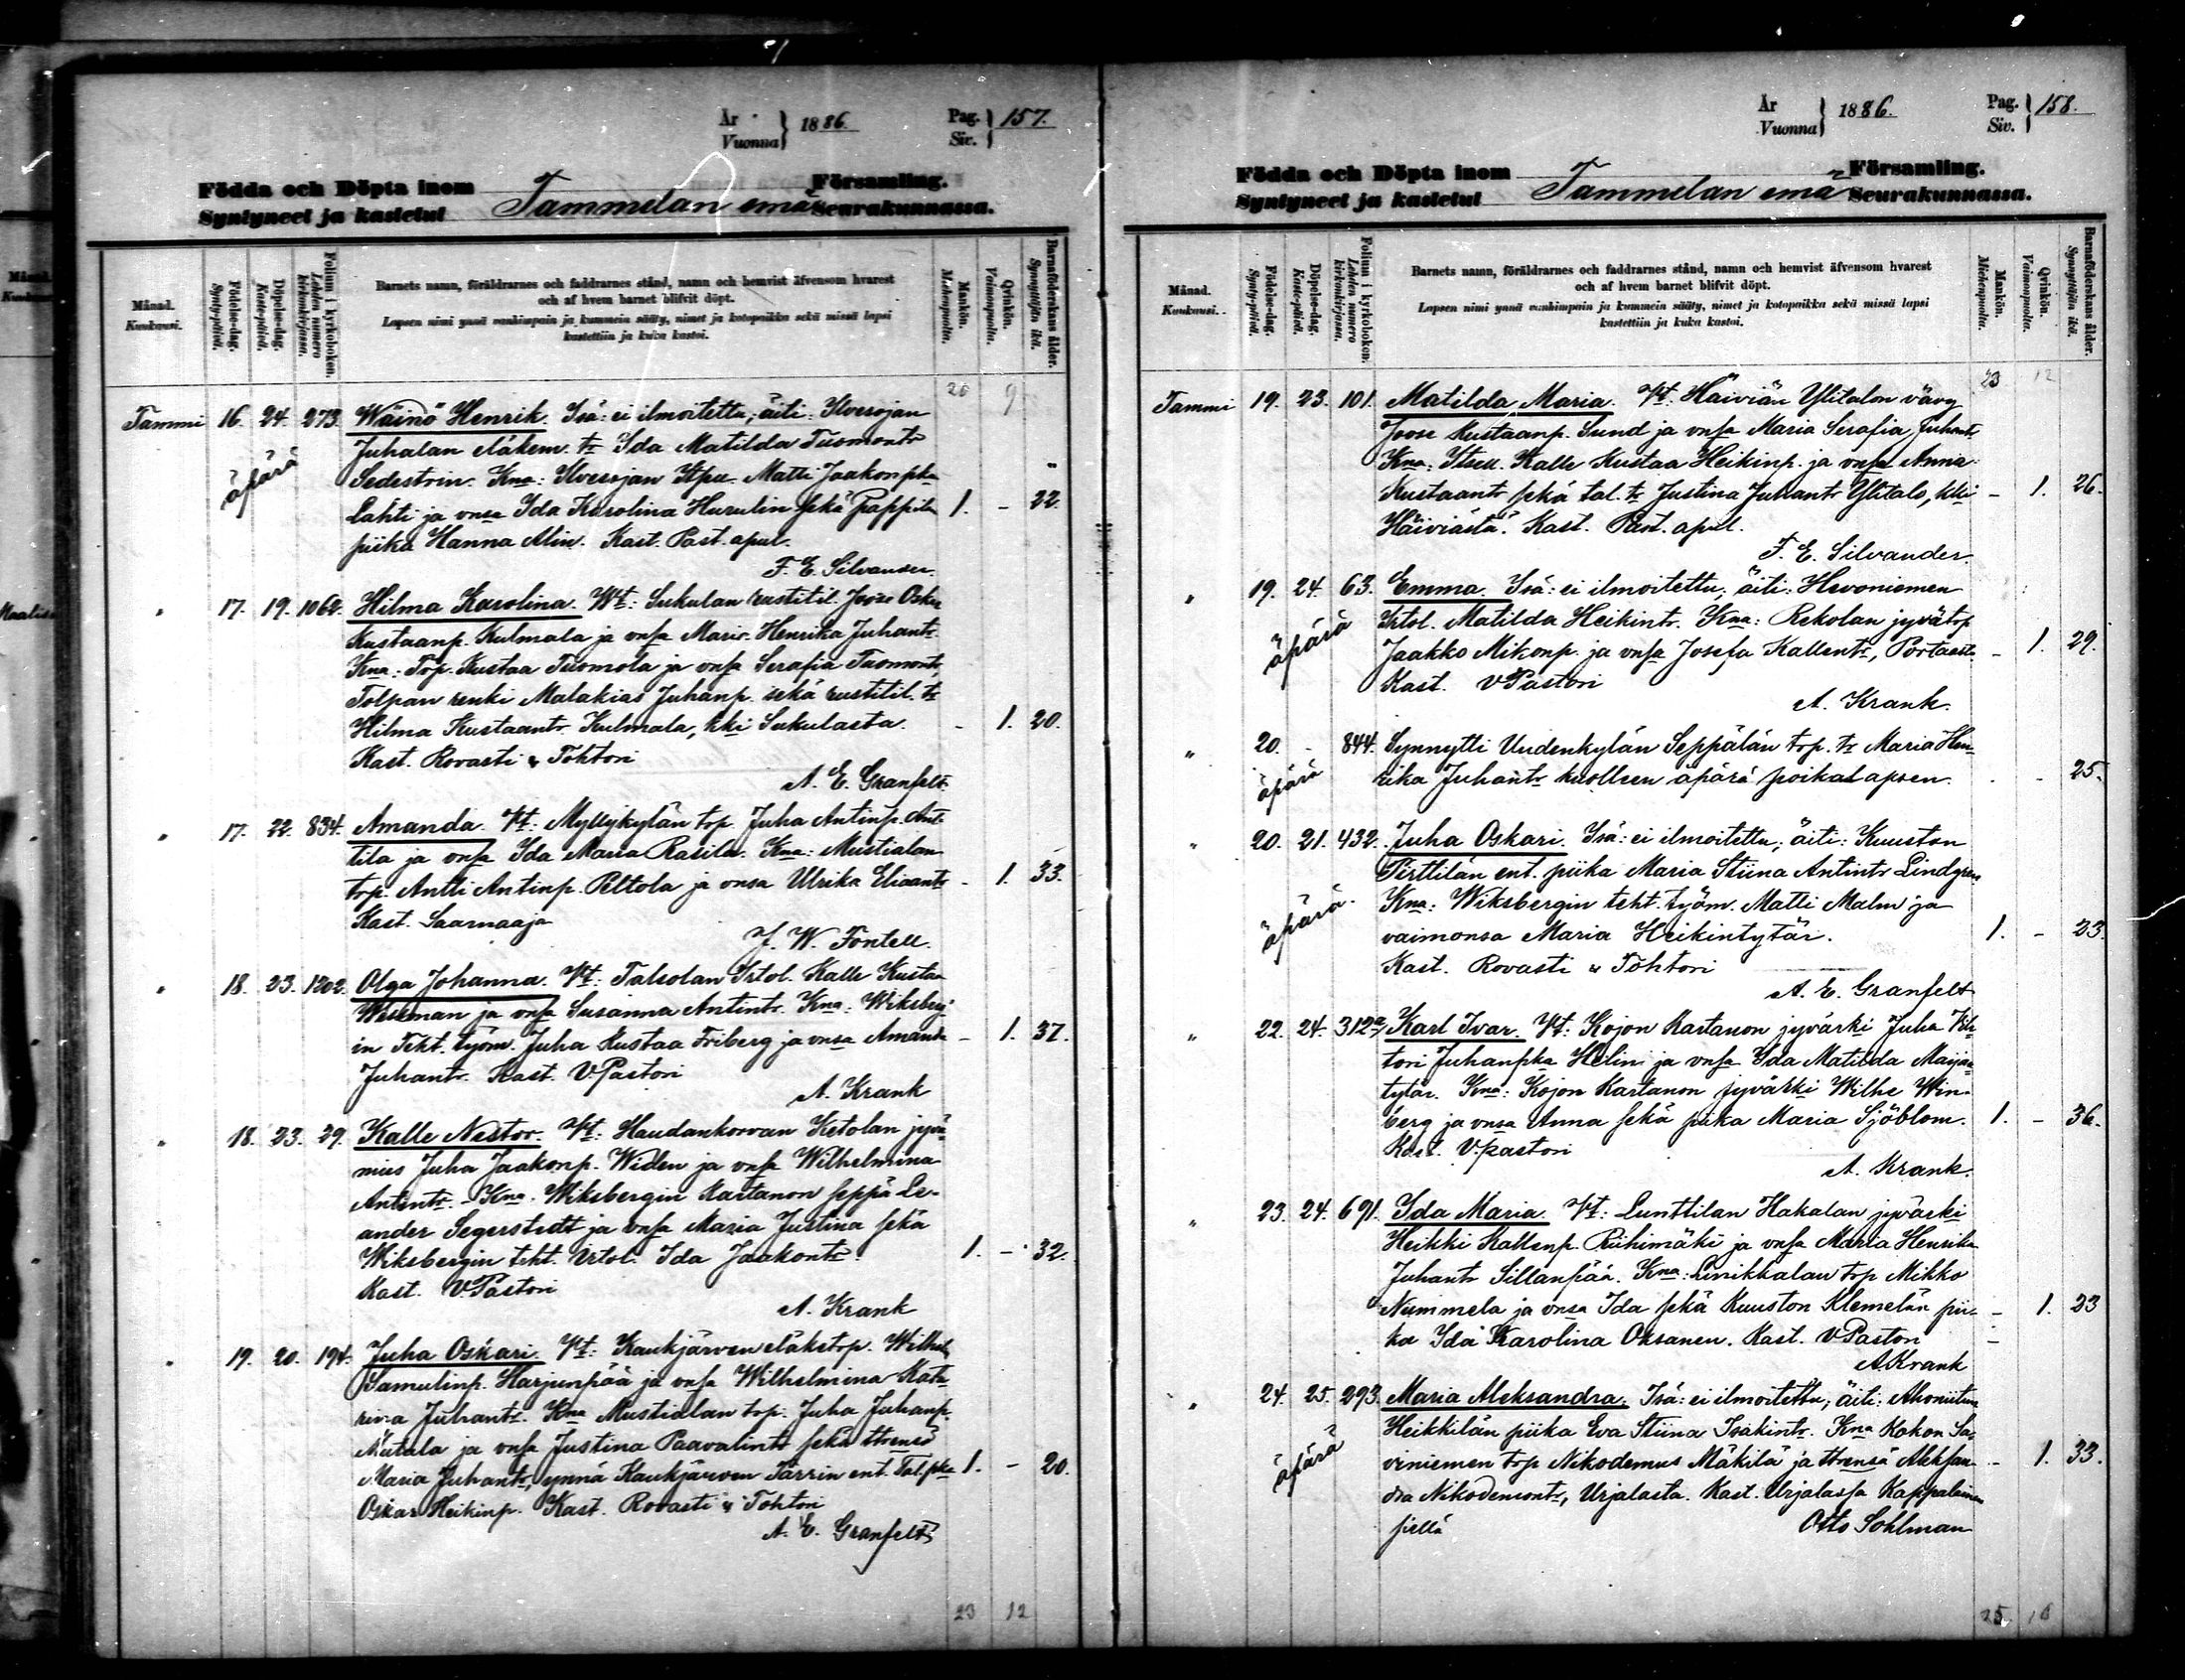 År
Vuonna } 1886.
Pag.
Siv. } 157.
Födda och Döpta inom
Syntyneet ja kastetut
Tammelan emä
Församling.
Seurakunnassa.
Månad.
Kuukausi.
Födelse-dag.
Synty-päivä.
Döpelse-dag.
Kaste-päivä.
Folium i kyrkoboken.
Lehden numero kirkonkirjassa.
Barnets namn, föräldrarnes och faddrarnes stånd, namn och hemvist äfvensom hvarest
och af hvem barnet blifvit döpt.
Lapsen nimi ynnä vanhimpain ja kummein sääty, nimet ja kotopaikka sekä missä lapsi
kastettiin ja kuka kastoi.
Mankön.
Miehenpuolta.
Qvinkön.
Vaimonpuolta.
Barnaföderskans ålder.
Synnyttäjän ikä.
20 9
Tammi 16. 24. 273. Wäinö Henrik. Isä: ei ilmoitettu; äiti: Ilvesojan
Juhalan eläkem. tr Ida Matilda Tuomontr
äpärä Sedestrin. Kna: Ilvesojan Itpu. Matti Jaakonpka
Lahti ja vnsa Ida Karolina Hurulin sekä Pappilan 1. - 22.
piika Hanna Alin. Kast. Past. apul.
F. E. Silvander.
" 17. 19. 1062. Hilma Karolina. Wt: Sukulan rustitil. Joose Oskar
Kustaanp. Kulmala ja vnsa Maria Henrika Juhantr.
Kna: Top. Kustaa Tuomola ja vnsa Serafia Tuomontr,
Tolpan renki Malakias Juhanp. sekä rustitil. tr
Hilma Kustaantr Kulmala, kki Sukulasta. - 1. 20.
Kast. Rovasti & Tohtori
A. E. Granfelt.
" 17. 22. 834. Amanda. Vt: Myllykylän top. Juha Antinp. Ant-
tila ja vnsa Ida Maria Rasila. Kna: Mustialan
top. Antti Antinp. Peltola ja vnsa Ulrika Eliaantr - 1. 33.
Kast. Saarnaaja
J. W. Fontell.
" 18. 23. 1202. Olga Johanna. Vt: Talsolan Irtol. Kalle Kustaa
Weseman ja vnsa Susanna Antintr. Kna: Wiksberg-
in Teht. työm. Juha Kustaa Friberg ja vnsa Amanda - 1. 37.
Juhantr. Kast. V. Pastori
A. Krank
" 18. 23. 29. Kalle Nestor. Vt: Haudankorvan Ketolan jyvä-
mies Juha Jaakonp. Widen ja vnsa Wilhelmina
Antintr. - Kna. Wiksbergin Kartanon seppä Le-
ander Segerstedt ja vnsa Maria Justina sekä
Wiksbergin teht. Irtol. Ida Jaakontr. 1. - 32.
Kast. V. Pastori
A. Krank
" 19. 20. 194. Juha Oskari. Vt: Kaukjärven eläkstop. Wilhel.
Samulinp. Harjunpää ja vnsa Wilhelmina Kata-
rina Juhantr. Kna Mustialan top. Juha Juhanp.
Nutala ja vnsa Justina Paavalintr sekä ttrensä
Maria Juhantr, ynnä Kaukjärven Tärrin ent. Tal. pka 1. - 20.
Oskar Heikinp. Kast. Rovasti & Tohtori
A. E. Granfelt
23 12
År
Vuonna } 1886.
Pag.
Siv. } 158.
Födda och Döpta inom
Syntyneet ja kastetut
Tammelan emä
Församling.
Seurakunnassa.
Månad.
Kuukausi.
Födelse-dag.
Synty-päivä.
Döpelse-dag.
Kaste-päivä.
Folium i kyrkoboken.
Lehden numero kirkonkirjassa.
Barnets namn, föräldrarnes och faddrarnes stånd, namn och hemvist äfvensom hvarest
och af hvem barnet blifvit döpt.
Lapsen nimi ynnä vanhimpain ja kummein sääty, nimet ja kotopaikka sekä missä lapsi
kastettiin ja kuka kastoi.
Mankön.
Miehenpuolta.
Qvinkön.
Vaimonpuolta.
Barnaföderskans ålder.
Synnyttäjän ikä.
23 12
Tammi 19. 23. 101. Matilda Maria. Vt. Häiviän Ylitalon vävy
Joose Kustaanp. Sund ja vnsa Maria Serafia Juhantr.
Kna: Itsell. Kalle Kustaa Heikinp. ja vnsa Anna
Kustaantr sekä tal. tr Justina Juhantr Ylitalo, kki - 1. 26.
Häiviästä. Kast. Past. apul.
F. E. Silvander.
" 19. 24. 63. Emma. Isä: ei ilmoitettu; äiti: Hevoniemen
äpärä Irtol. Matilda Heikintr. Kna: Rekolan jyvätop
Jaakko Mikonp. ja vnsa Josefa Kallentr, Portaast. - 1. 29.
Kast. V Pastori
A. Krank.
" 20. - 844. Synnytti Uudenkylän Seppälän top. tr Maria Hen-
äpärä rika Juhantr kuolleen äpärä poikalapsen. - - 25.
" 20. 21. 432. Juha Oskari. Isä: ei ilmoitettu; äiti: Kuuston
Pirttilän ent. piika Maria Stiina Antintr Lindgren
äpärä Kna: Wiksbergin teht. työm. Matti Malm ja
vaimonsa Maria Heikintytär. 1. - 23.
Kast. Rovasti & Tohtori
A. E. Granfelt
" 22. 24. 312a/ Karl Ivar. Vt: Kojon Kartanon jyvärki Juha Vih-
tori Juhanpka Helin ja vnsa Ida Matilda Maijan-
tytär. Kna: Kojon Kartanon jyvärki Wilhe Win-
berg ja vnsa Anna sekä piika Maria Sjöblom. 1. - 36.
Kast. V. pastori
A. Krank.
" 23. 24. 691. Ida Maria. Vt: Lunttilan Hakalan jyvärki
Heikki Kallenp. Riihimäki ja vnsa Maria Henrika
Juhantr Sillanpää. Kna: Linikkalan top Mikko
Nummela ja vnsa Ida sekä Kuuston Klemelän pii- - 1. 23
ka Ida Karolina Oksanen. Kast. V Pastori -
A. Krank
" 24. 25. 293. Maria Aleksandra. Isä: ei ilmoitettu; äiti: Ahoniitun
Heikkilän piika Eva Stiina Isakintr. Kna Kokon Sa-
äpärä viniemen top Nikodemus Mäkilä ja ttrensä Aleksan- - 1. 33.
dra Nikodemontr, Urjalasta. Kast. Urjalassa Kappalainen
siellä Otto Sohlman
25. 16